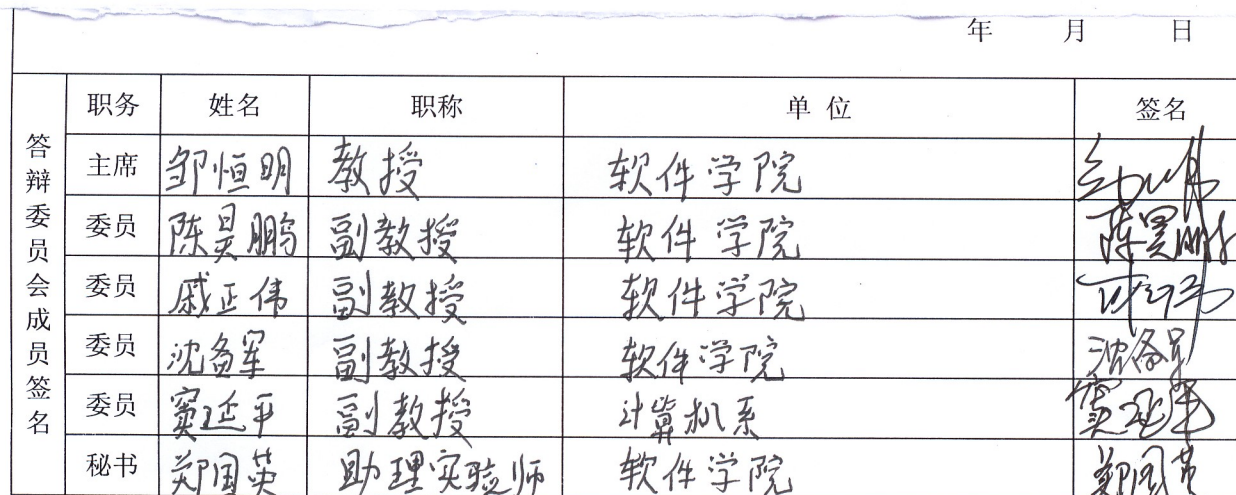 年 月 日
答辩委员会成员签名
职务 姓名 职称 单位 签名
主席 邹恒明 教授 软件学院
委员 陈昊鹏 副教授 软件学院 陈昊鹏
委员 戚正伟 副教授 软件学院
委员 沈备军 副教授 软件学院 沈备军
委员 窦延平 副教授 计算机系 窦延平
秘书 郑国英 助理实验师 软件学院 郑国英